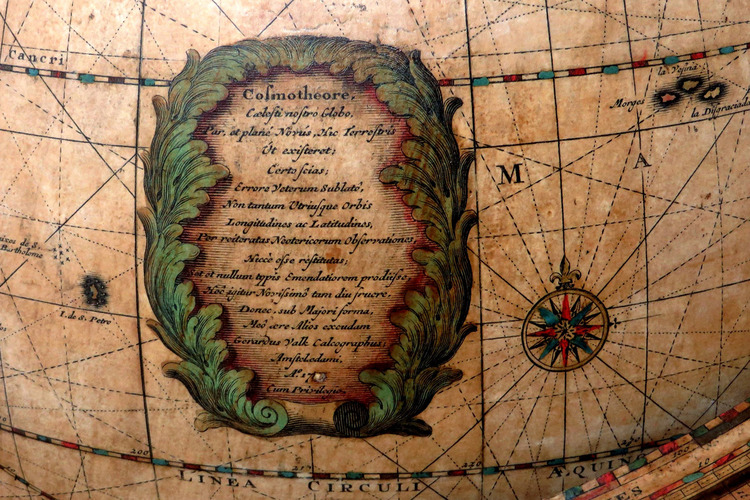 Cancri
la Vezina
Morges
la Disgraciada
M
A
Cosmotheore,
Cœlesti nostro Globo,
Par, et plane Novus, Hic Terrestris
Ut existeret;
Certo scias;
Errore Veterum Sublato,
Non tantum Utriusque Orbis
Longitudines ac Latitudines,
Per reiteratas Neotericorum Observationes,
Hicce esse restitutas;
Sed et nullum typis Emendatiorem prodiisse.
Hoc igitur Novissimo tam diu fruere,
Donec, sub Majori forma,
Meo ære Alios excudam
Gerardus Valk Calcographus,
Amstelædami.
Aº. 17
Cum Privilegio.
Bartholome
I. de S. Petre
200
220
230
Linea Circuli Æquin
10